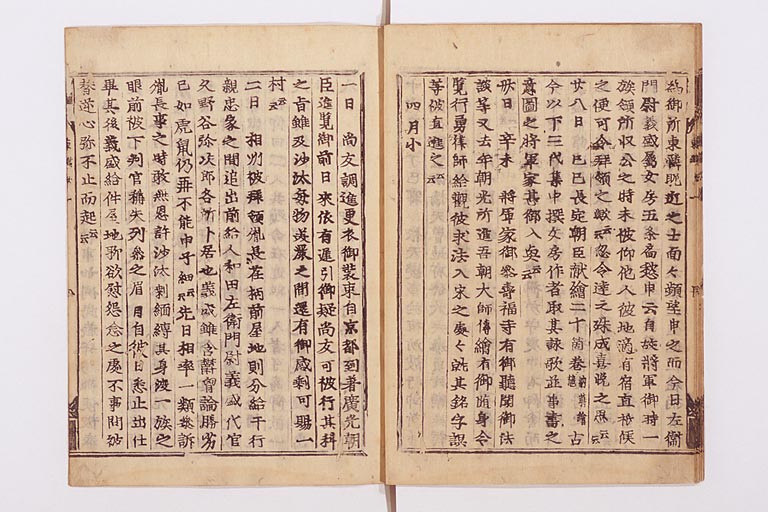 為御所東隣昵近之士面々頻望申之而今日左衛
門尉義盛属女房五条局愁申云自故将軍御時一
族領所収公之時未被仰他人彼地適有宿直祗候
之便可令拝領之歟云云忽令達之殊成喜悦之思云云
廿八日 己巳長定朝臣献繪二十箇巻 古
今以下三代集中撰女房作者取其詠歌并事書之
意図之将軍家甚御入興云云
卅日 辛未 将軍家御参壽福寺有御聴聞御法
談等又去年朝光所進吾朝大師傳繪有御随身令
覧行勇律師給觀彼求法入宋之處々其銘字誤
等被直進之云云
四月小
一日 尚友調進更衣御装束自京都到着廣元朝
臣進覧御前日来依有遅引御疑尚友可被行其科
之旨雖及沙汰毎物美麗之間還有御感剰可賜一
村云云
二日 相州被拝領胤長荏柄前屋地則分給于行
親忠家之間追出前給人和田左衛門尉義盛代官
久野谷弥次郎各所卜居也義盛雖含欝胸論勝劣
已如虎鼠仍再不能申子細云云先日相率一類参訴
胤長事之時敢無恩許沙汰剰面縛其身渡一族之
眼前被下判官稱失列参之眉目自彼日悉止出仕
畢其後義盛給件屋地聊欲慰怨念之處不事問被
替逆心弥不止而起云云